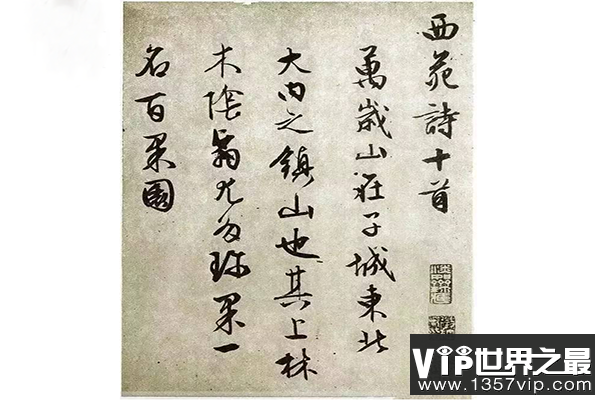 西苑詩十首
萬歲山在子城東北
大內之鎮山也其上林
木陰翳尤多珍果一
名百果園
VIP世界之最
www.1357vip.com